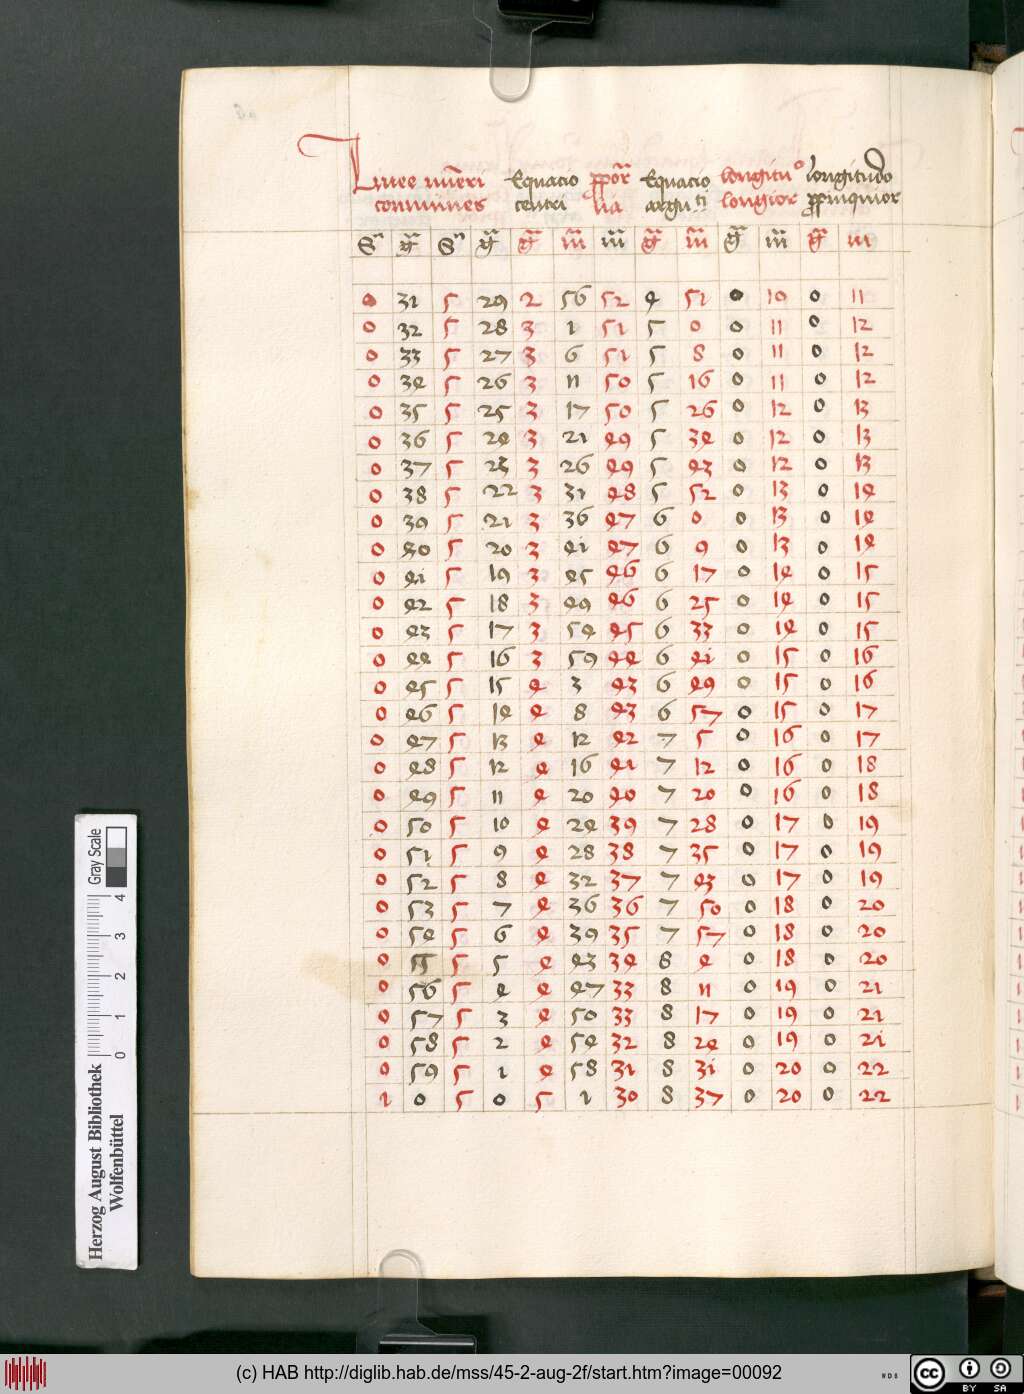 Linee nūeri Equacio ꝓpor̄ Equacio longitu° longitudo
coniunes centri lia argu.ti longior ꝓpinquior
S̄ ḡ S̄ ḡ ḡ m̄ m̄ ḡ m̄ ḡ m̄ ḡ m
0 31 5 29 2 56 52 4 51 0 10 0 11
0 32 5 28 3 1 51 5 0 0 11 0 12
0 33 5 27 3 6 51 5 8 0 11 0 12
0 34 5 26 3 11 50 5 16 0 11 0 12
0 35 5 25 3 17 50 5 26 0 12 0 13
0 36 5 24 3 21 49 5 34 0 12 0 13
0 37 5 23 3 26 49 5 43 0 12 0 13
0 38 5 22 3 31 48 5 52 0 13 0 14
0 39 5 21 3 36 47 6 0 0 13 0 14
0 40 5 20 3 41 47 6 9 0 13 0 14
0 41 5 19 3 45 46 6 17 0 14 0 15
0 42 5 18 3 49 46 6 25 0 14 0 15
0 43 5 17 3 54 45 6 33 0 14 0 15
0 44 5 16 3 59 44 6 41 0 15 0 16
0 45 5 15 4 3 43 6 49 0 15 0 16
0 46 5 14 4 8 43 6 57 0 15 0 17
0 47 5 13 4 12 42 7 5 0 16 0 17
0 48 5 12 4 16 41 7 12 0 16 0 18
0 49 5 11 4 20 40 7 20 0 16 0 18
0 50 5 10 4 24 39 7 28 0 17 0 19
0 51 5 9 4 28 38 7 35 0 17 0 19
0 52 5 8 4 32 37 7 43 0 17 0 19
0 53 5 7 4 36 36 7 50 0 18 0 20
0 54 5 6 4 39 35 7 57 0 18 0 20
0 55 5 5 4 43 34 8 4 0 18 0 20
0 56 5 4 4 47 33 8 11 0 19 0 21
0 57 5 3 4 50 33 8 17 0 19 0 21
0 58 5 2 4 54 32 8 24 0 19 0 21
0 59 5 1 4 58 31 8 31 0 20 0 22
1 0 5 0 5 1 30 8 37 0 20 0 22
Herzog August Bibliothek
Wolfenbüttel
0 1 2 3 4
Gray Scale
(c) HAB http://diglib.hab.de/mss/45-2-aug-2f/start.htm?image=00092
WDB
cc BY SA